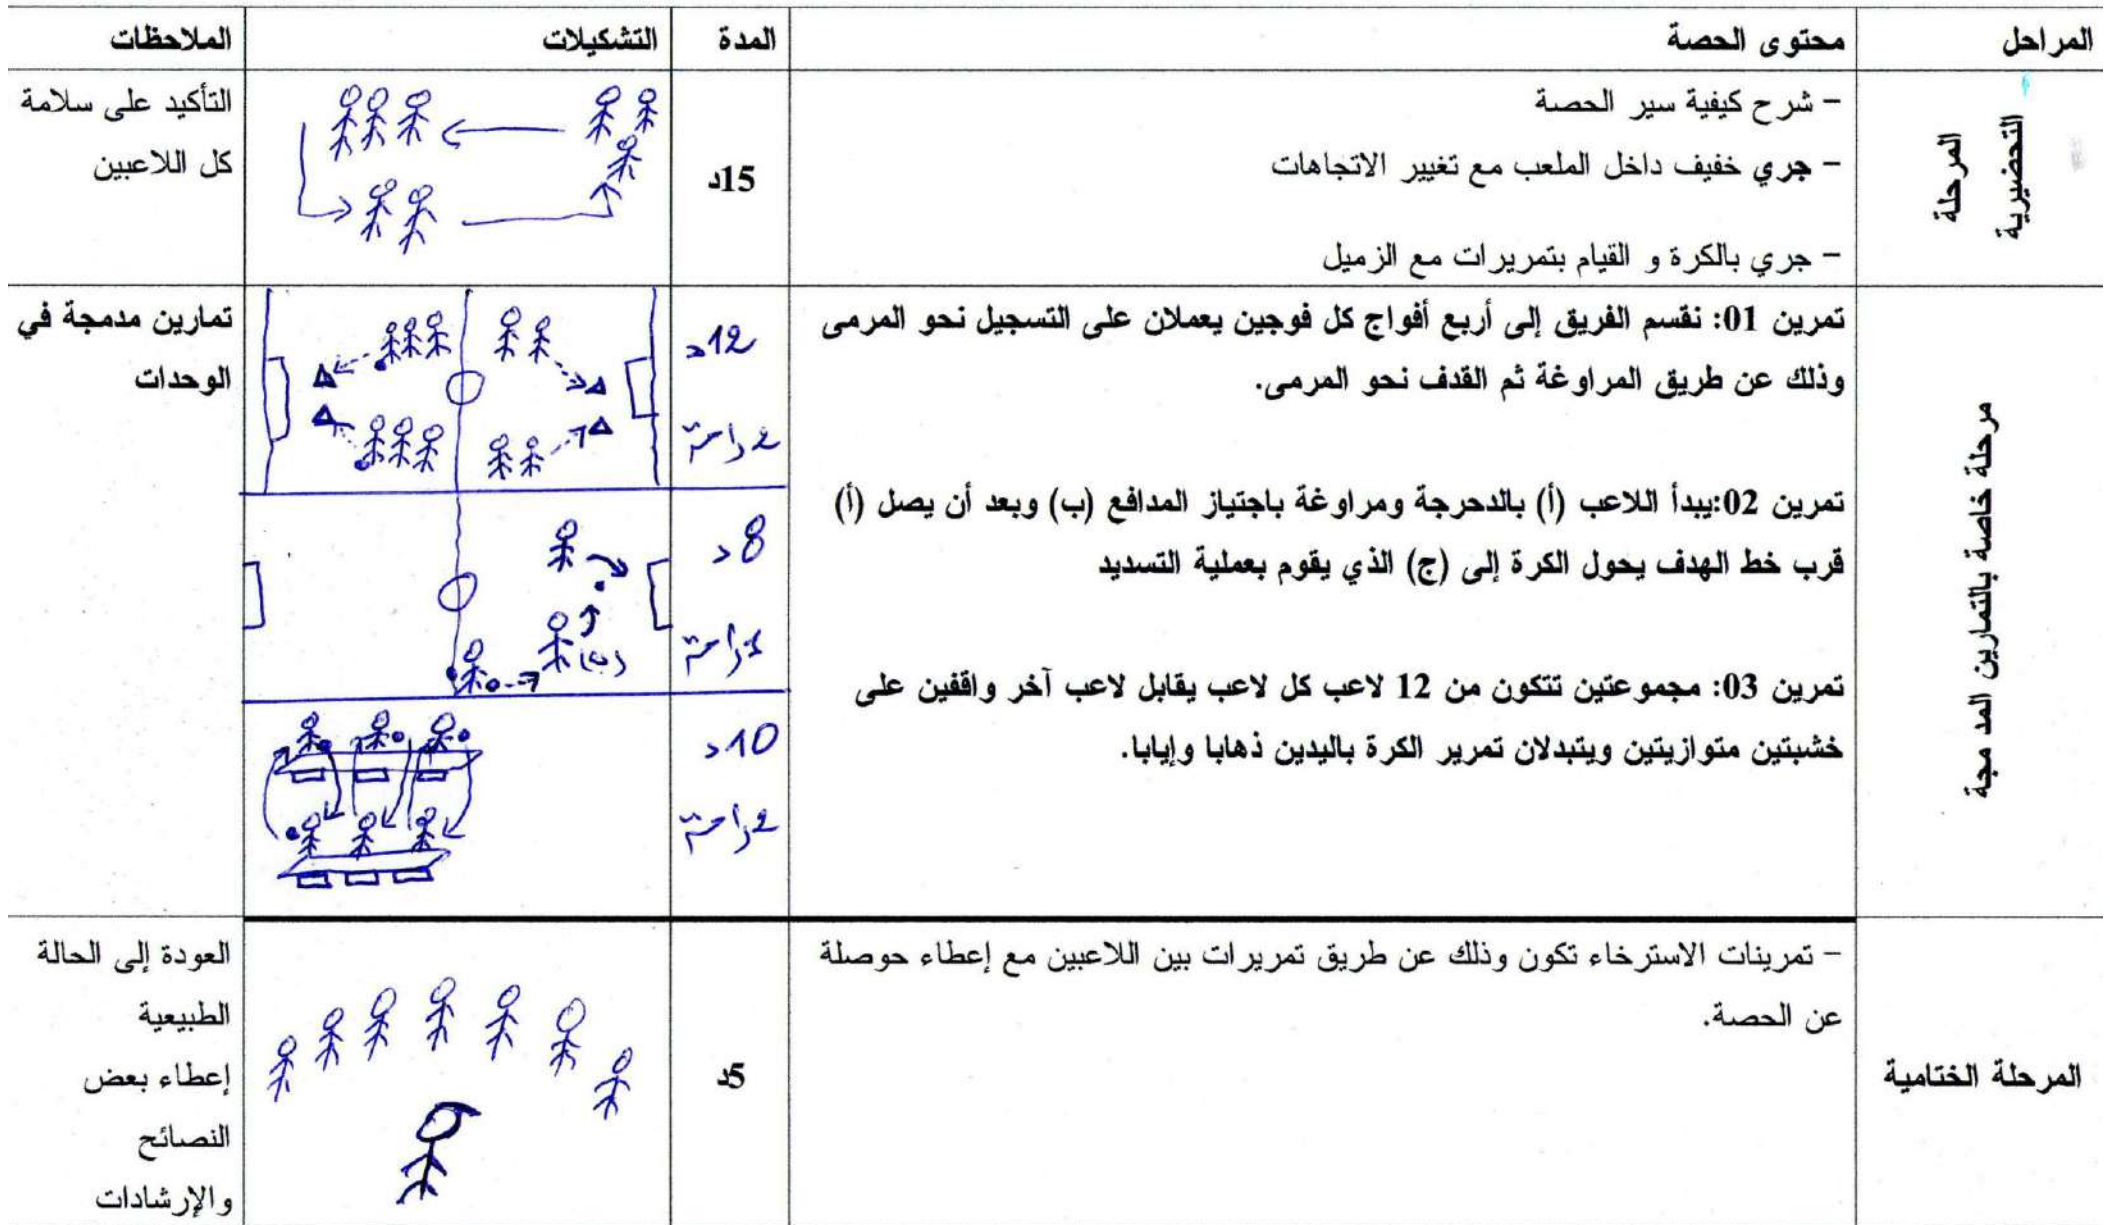 المراحل
محتوى الحصة
المدة
التشكيلات
الملاحظات
المرحلة
التحضيرية
– شرح كيفية سير الحصة
– جري خفيف داخل الملعب مع تغيير الاتجاهات
– جري بالكرة و القيام بتمريرات مع الزميل
15د
التأكيد على سلامة
كل اللاعبين
مرحلة خاصة بالتمارين المد مجة
تمرين 01: نقسم الفريق إلى أربع أفواج كل فوجين يعملان على التسجيل نحو المرمى
وذلك عن طريق المراوغة ثم القدف نحو المرمى.
تمرين 02:يبدأ اللاعب (أ) بالدحرجة ومراوغة باجتياز المدافع (ب) وبعد أن يصل (أ)
قرب خط الهدف يحول الكرة إلى (ج) الذي يقوم بعملية التسديد
تمرين 03: مجموعتين تتكون من 12 لاعب كل لاعب يقابل لاعب آخر واقفين على
خشبتين متوازيتين ويتبدلان تمرير الكرة باليدين ذهابا وإيابا.
12د
2د راحة
8د
راحة
10د
2د راحة
(ب)
تمارين مدمجة في
الوحدات
المرحلة الختامية
– تمرينات الاسترخاء تكون وذلك عن طريق تمريرات بين اللاعبين مع إعطاء حوصلة
عن الحصة.
5د
العودة إلى الحالة
الطبيعية
إعطاء بعض
النصائح
والإرشادات